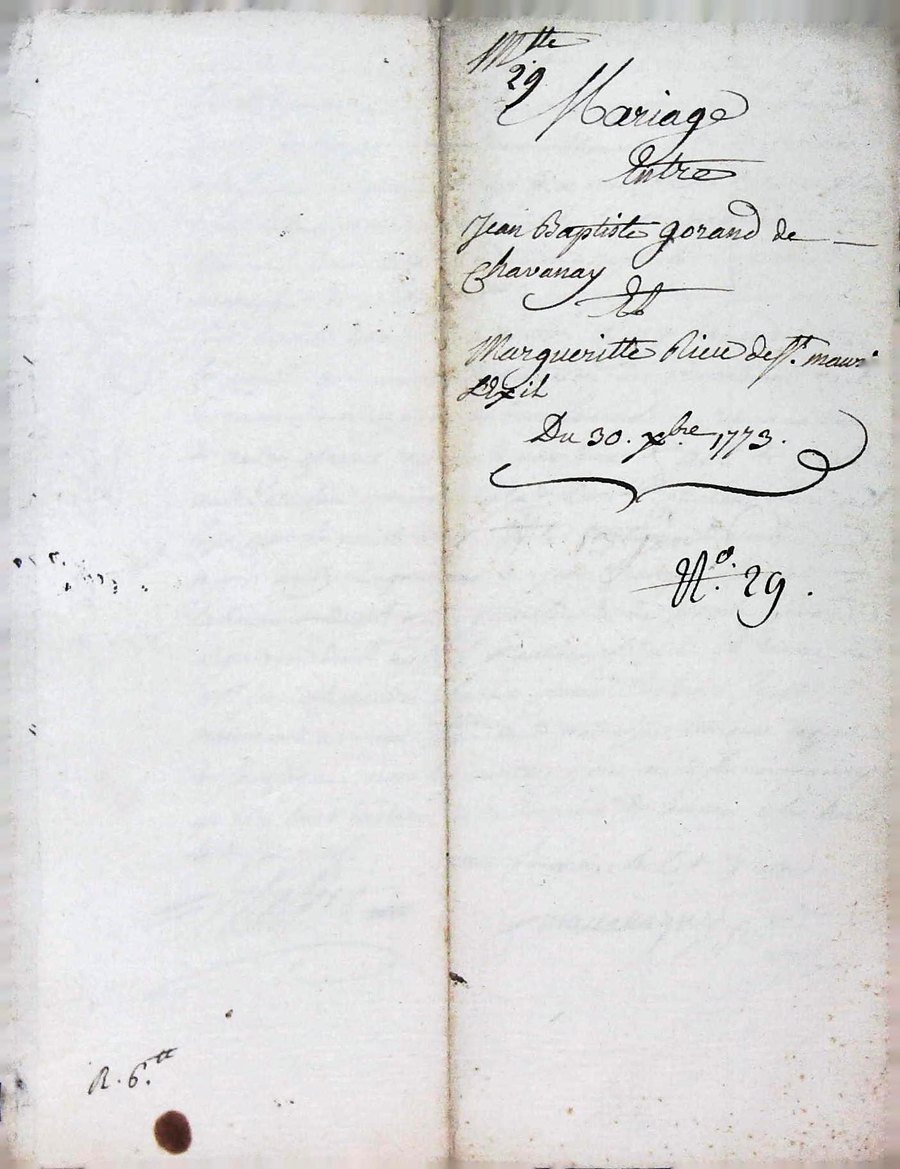 Mtte
29
Mariage
Entre
Jean Baptiste gorand de
Chavanay
Et
Margueritte Rieu de St. maur
L'Exil
Du 30. xbre 1773.
No. 29.
R. 6.tt